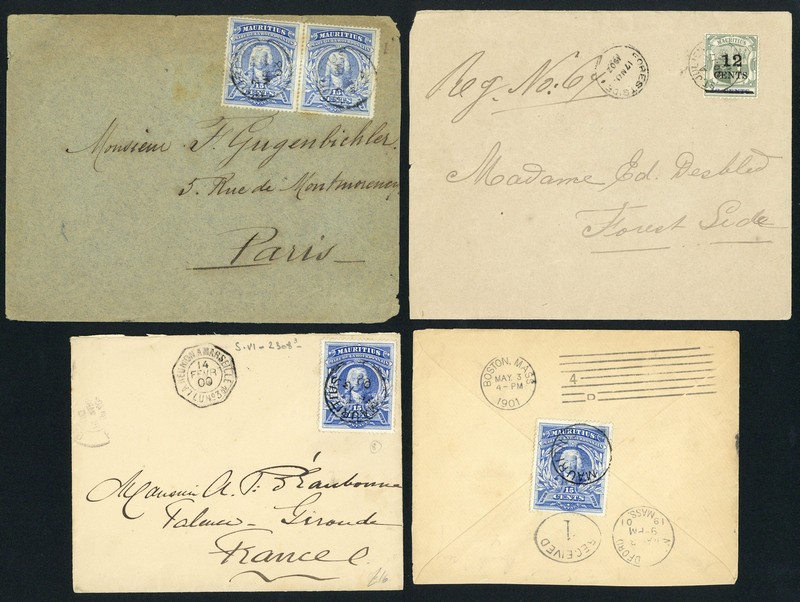 MAURITIUS
MAURITIUS
15
CENTS
15
CENTS
Monsieur F. Gugenbichler
5. Rue de Montmorency
Paris
MAURITIUS
12
CENTS
Reg. No. 61
FOREST SIDE
17
1902
Madame Ed. Desbled
Forest Side
S.VI-2308³
LA REUNION A MARSEILLE
14
FEVR
00
MAURITIUS
15
CENTS
Monsieur A. P.
Talence - Gironde
France
BOSTON, MASS.
MAY 3
4-PM
1901
4
D
MAURITIUS
15
CENTS
MAURITIUS
RECEIVED
1
MASS.
9-PM
19 01